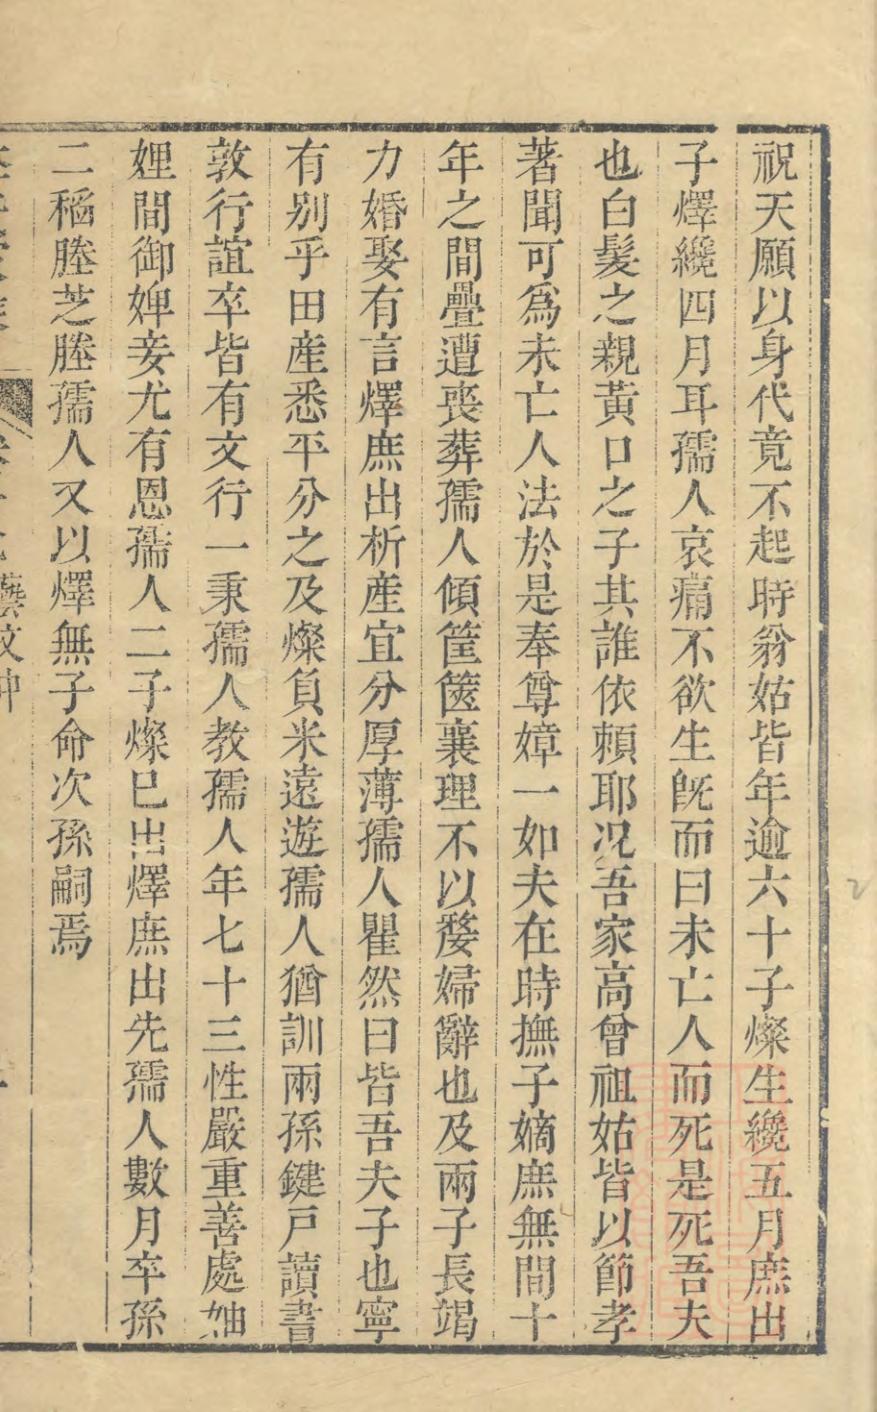 祝天願以身代竟不起時翁姑皆年逾六十子燦生纔五月庶出
子燡纔四月耳孺人哀痛不欲生旣而曰未亡人而死是死吾夫
也白髮之親黃口之子其誰依賴耶况吾家高曾祖姑皆以節孝
著聞可爲未亡人法於是奉尊嫜一如夫在時撫子嫡庶無間十
年之間疊遭喪葬孺人傾筐篋襄理不以嫠婦辭也及兩子長竭
力婚娶有言燡庶出析產宜分厚薄孺人瞿然曰皆吾夫子也寧
有别乎田產悉平分之及燦負米遠遊孺人猶訓兩孫鍵戸讀書
敦行誼卒皆有文行一秉孺人教孺人年七十三性嚴重善處妯
娌間御婢妾尤有恩孺人二子燦已出燡庶出先孺人數月卒孫
二稻塍芝塍孺人又以燡無子命次孫嗣焉
藝文中